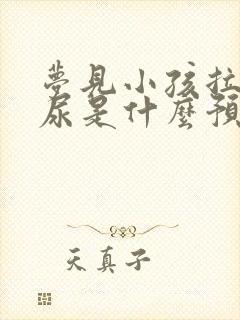 夢見小孩拉
尿是什麼預
天真子